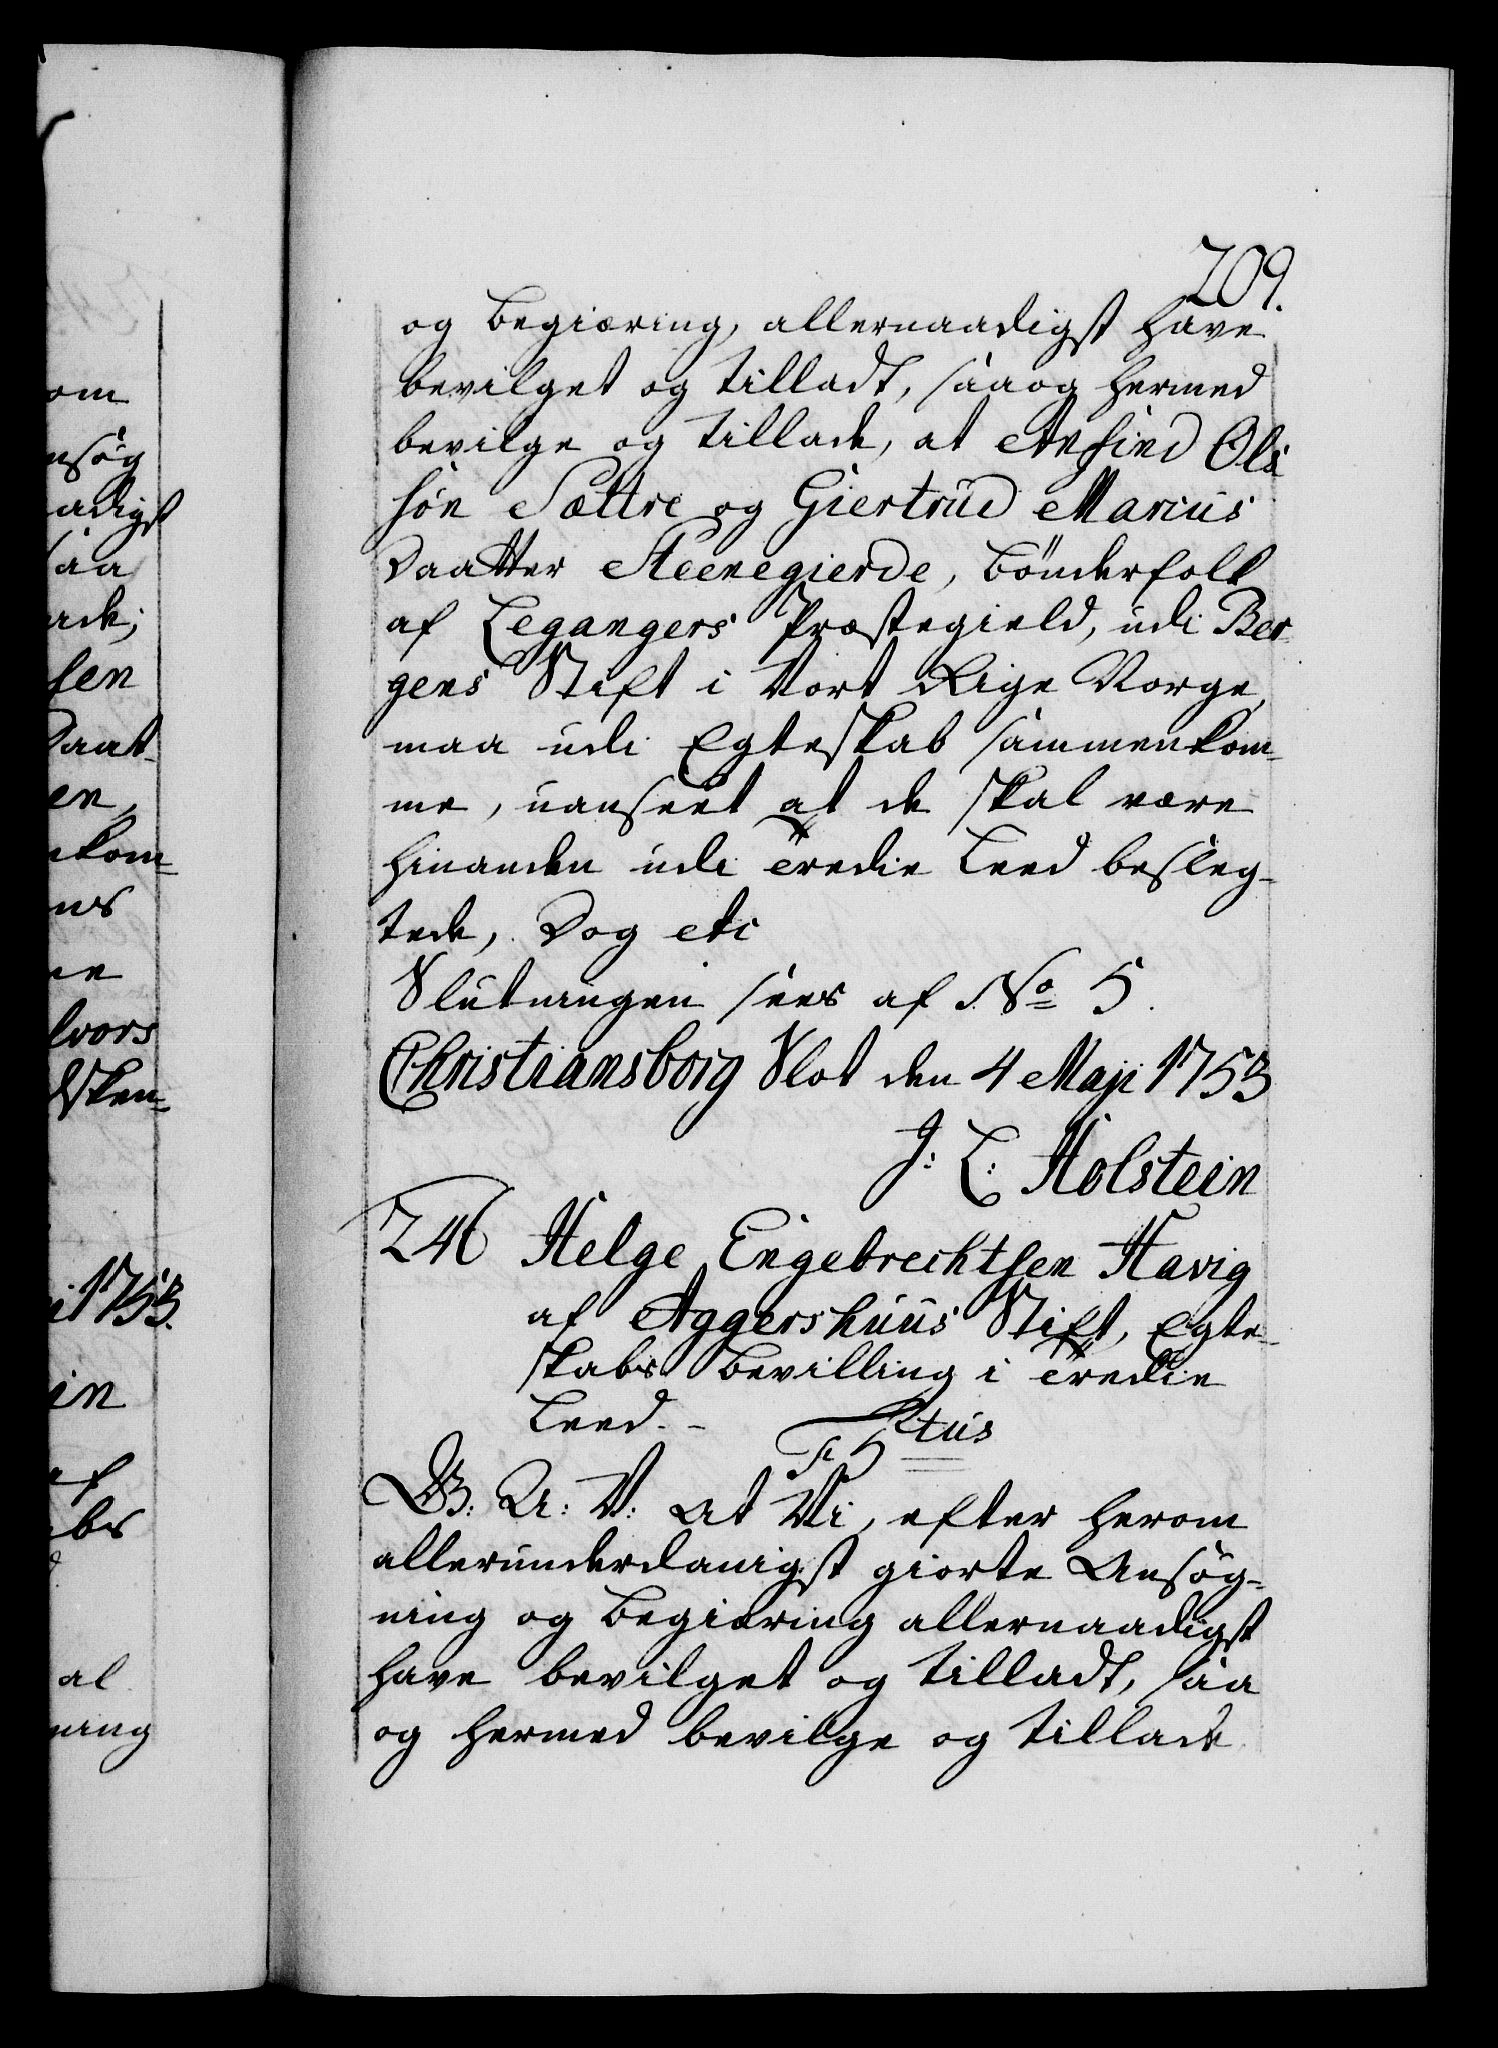 om
nsøg
adigst
saa
ade;
sen
Daat-
en,
kom-
ns
ne
lvors
dsken-
i 1753.
in
af
bs
al
ning
209.
og Begiæring, allernaadigst have
bevilget og tilladt, saa og hermed
bevilge og tillade, at Anfind Ols
søn Sættre og Giertrud Marcus
Daatter Steenegierde, Bønderfolk
af Legangers Præstegield, udi Ber-
gens Stift i Vort Rige Norge,
maa udi Egteskab sammenkom-
me, uanseet at de skal være
hinanden udi tredie Leed beslæg-
tede, Dog etc
Slutningen sees af No 5.
Christiansborg Slot den 4 Maji 1753
J: L: Holstein
246 Helge Engebrechtsen Havig
af Aggershuus Stift, Egte-
skabs Bevilling i tredie
Leed. -
F 5tus
G: A: V: At Vi, efter herom
allerunderdanigst giorte Ansøg-
ning og Begiæring allernaadigst
have bevilget og tilladt, saa
og hermed bevilge og tillade